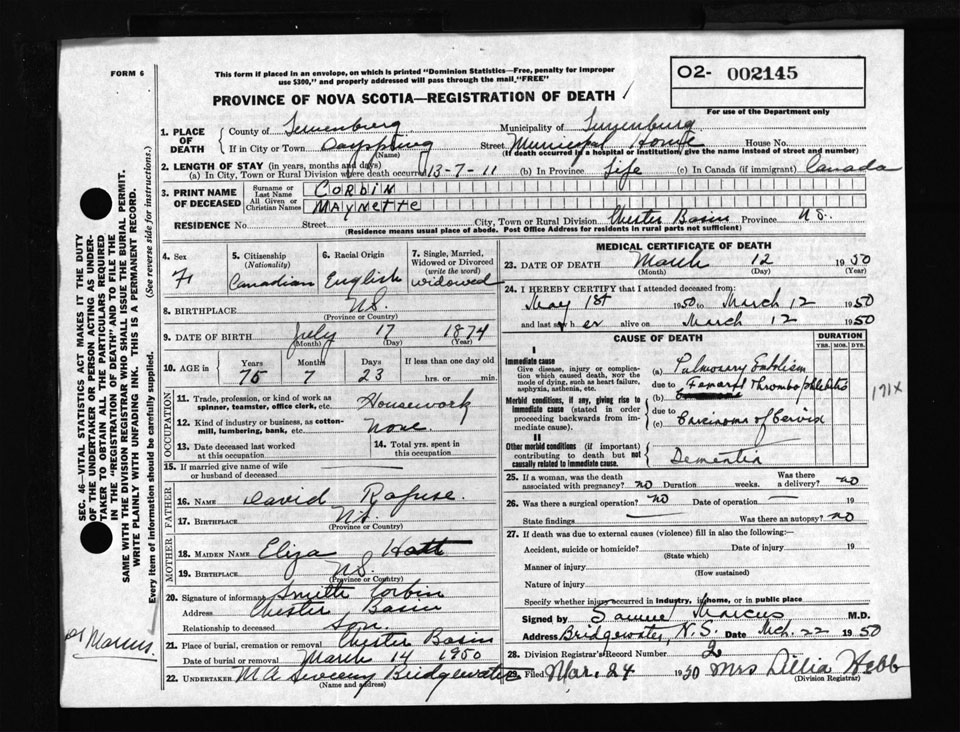 FORM 6
This form if placed in an envelope, on which is printed "Dominion Statistics—Free, penalty for improper
use $300," and properly addressed will pass through the mail, "FREE"
O2- 002145
For use of the Department only
PROVINCE OF NOVA SCOTIA—REGISTRATION OF DEATH
1. PLACE OF DEATH
County of Lunenburg Municipality of Lunenburg
If in City or Town Dayspring (Name) Street Municipal Home House No.
(If death occurred in a hospital or institution, give the name instead of street and number)
2. LENGTH OF STAY (in years, months and days)
(a) In City, Town or Rural Division where death occurred 13-7-11 (b) In Province Life (c) In Canada (if immigrant) Canada
3. PRINT NAME OF DECEASED
Surname or Last Name CORBIN
All Given or Christian Names MAYNETTE
RESIDENCE No. Street City, Town or Rural Division Chester Basin Province N.S.
(Residence means usual place of abode. Post Office Address for residents in rural parts not sufficient)
4. Sex F
5. Citizenship (Nationality) Canadian
6. Racial Origin English
7. Single, Married, Widowed or Divorced (write the word) widowed
8. BIRTHPLACE N.S.
(Province or Country)
9. DATE OF BIRTH July 17 1874
(Month) (Day) (Year)
10. AGE in Years 75 Months 7 Days 23 If less than one day old
hrs. or min.
OCCUPATION
11. Trade, profession, or kind of work as spinner, teamster, office clerk, etc. Housework
12. Kind of industry or business, as cotton-mill, lumbering, bank, etc. none
13. Date deceased last worked at this occupation
14. Total yrs. spent in this occupation
15. If married give name of wife or husband of deceased
FATHER
16. NAME David Rafuse
17. BIRTHPLACE N.S.
(Province or Country)
MOTHER
18. MAIDEN NAME Eliza Hatt
19. BIRTHPLACE N.S.
(Province or Country)
20. Signature of informant Smith Corbin
Address Chester Basin
Relationship to deceased son
21. Place of burial, cremation or removal Chester Basin
Date of burial or removal March 14 1950
22. UNDERTAKER M A Sweeny Bridgewater
(Name and address)
MEDICAL CERTIFICATE OF DEATH
23. DATE OF DEATH March 12 1950
(Month) (Day) (Year)
24. I HEREBY CERTIFY that I attended deceased from:
May 1st 1950 to March 12 1950
and last saw h er alive on March 12 1950
CAUSE OF DEATH DURATION
YRS. MOS. DYS.
I
Immediate cause
Give disease, injury or complication which caused death, NOT the mode of dying, such as heart failure, asphyxia, asthenia, etc.
(a) Pulmonary Embolism
due to Femoral Thrombophlebitis
(b)
Morbid conditions, if any, giving rise to immediate cause (stated in order proceeding backwards from immediate cause).
due to
(c) Carcinoma of Cervix
171X
II
Other morbid conditions (if important) contributing to death but not causally related to immediate cause.
Dementia
25. If a woman, was the death associated with pregnancy? no Duration weeks. Was there a delivery? no
26. Was there a surgical operation? no Date of operation 19
State findings Was there an autopsy? no
27. If death was due to external causes (violence) fill in also the following:—
Accident, suicide or homicide? Date of injury 19
(State which)
Manner of injury
(How sustained)
Nature of injury
Specify whether injury occurred in industry, in home, or in public place
Signed by Marcus M.D.
Address Bridgewater, N.S. Date Mch. 22 1950
28. Division Registrar's Record Number 2
29. Filed Mar. 24 1950 Mrs Dillia Webb
(Division Registrar)
SEC. 46—VITAL STATISTICS ACT MAKES IT THE DUTY
OF THE UNDERTAKER OR PERSON ACTING AS UNDER-
TAKER TO OBTAIN ALL THE PARTICULARS REQUIRED
IN THE "REGISTRATION OF DEATH" AND TO FILE THE
SAME WITH THE DIVISION REGISTRAR WHO SHALL ISSUE THE BURIAL PERMIT.
WRITE PLAINLY WITH UNFADING INK. THIS IS A PERMANENT RECORD.
Every item of information should be carefully supplied. (See reverse side for instructions.)
Marcus